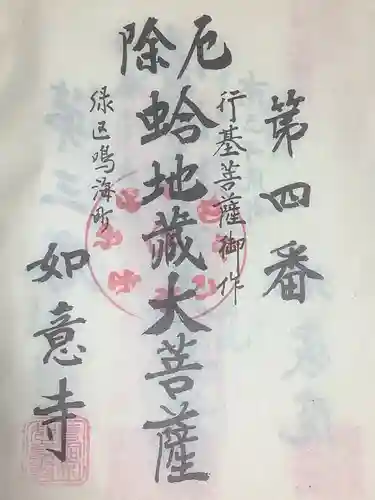 厄除
第四番
行基菩薩御作
蛤地藏大菩薩
緑区鳴海町
如意寺